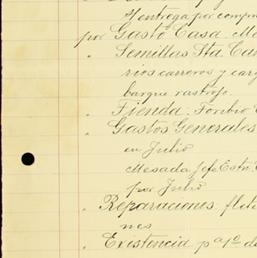 entrega por compr
por Gasto Casa. Ma
" Semillas Sta. Ca
rios carreros y carg
barque rastrojo
" Tienda. Toribio C
" Gastos Generales
en Julio
Mesada Jefe Estn.
por Julio
" Reparaciones flete
nes
" Existencia pa 1o. de